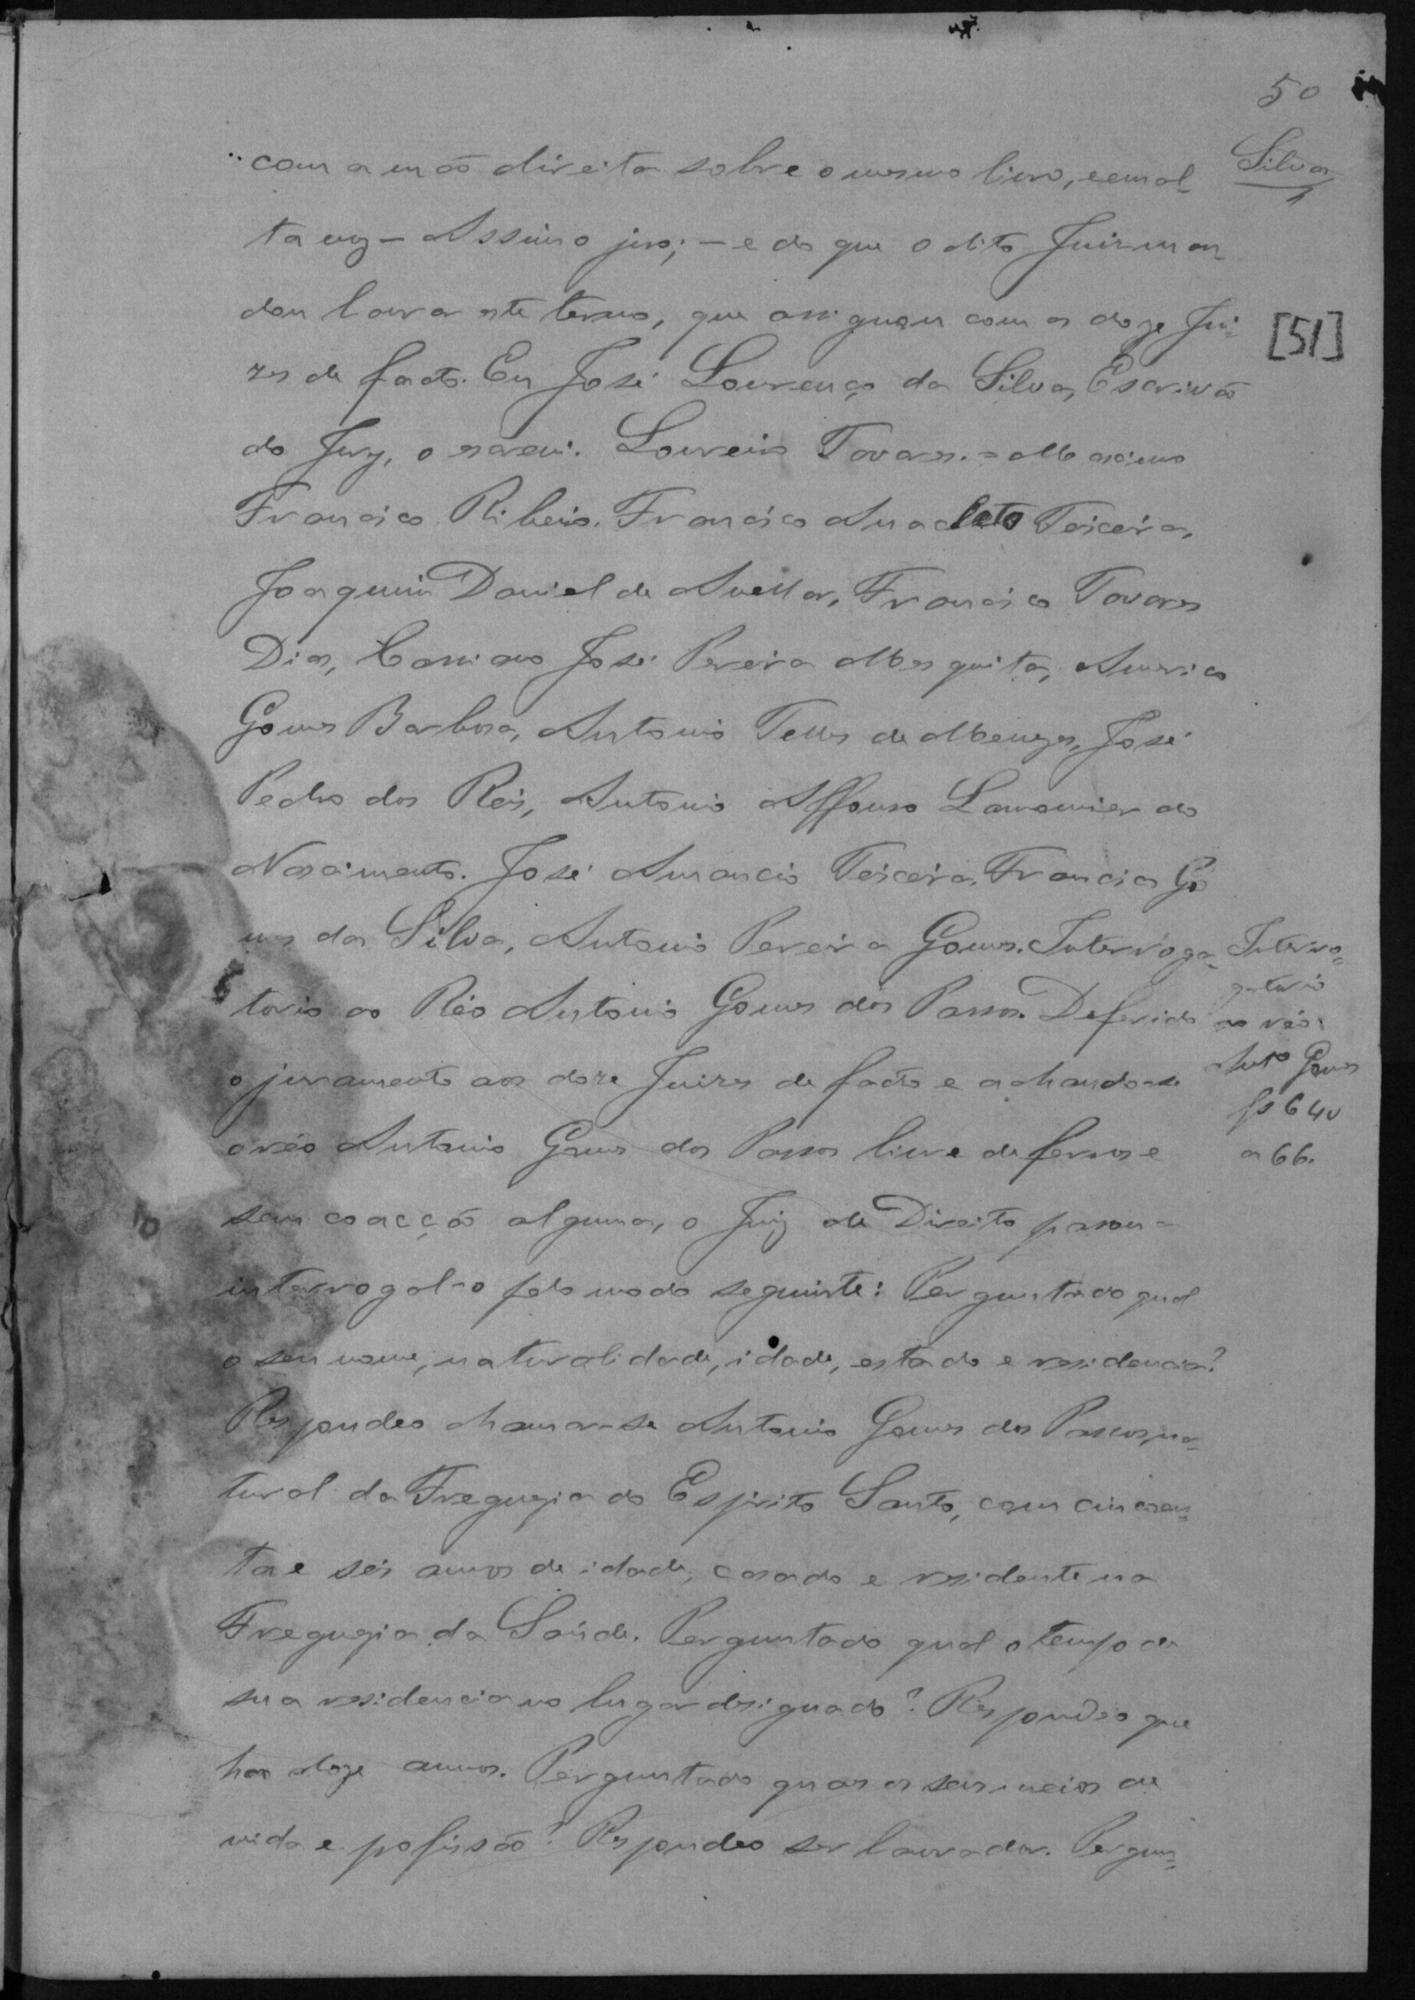 50
Silva
com a mão direita sobre o mesmo livro, e em al-
ta voz – Assim o juro; – e do que o dito Juiz man
dou lavrar este termo, que assignou com os doze Jui-
[51]
zes de facto. Eu José Lourenço da Silva, Escrivão
do Jury, o escrevi. Loureiro Tavares. = Maximo
Francisco Ribeiro. Francisco Anacleto Teixeira,
Joaquim Daniel de Avellar, Francisco Tavares
Dias, Cassiano José Pereira Mesquita, Americo
Gomes Barbosa, Antonio Telles de Menezes, José
Pedro dos Reis, Antonio Affonso Lamounier do
Nascimento. José Amancio Teixeira, Francisco Go
mes da Silva, Antonio Pereira Gomes. Interroga-
torio ao Réo Antonio Gomes dos Passos. Deferido
o juramento aos doze Juizes de facto e achando-se
o réo Antonio Gomes dos Passos livre de ferros e
sem coacção alguma, o Juiz de Direito passou a
interrogal-o pelo modo seguinte: Perguntado qual
o seu nome, naturalidade, idade, estado e residencia?
Respondeo chamar-se Antonio Gomes dos Passos, na-
tural da Freguezia do Espirito Santo, com cincoen-
ta e seis annos de idade, casado e residente na
Freguezia da Saúde. Perguntado qual o tempo de
sua residencia no lugar designado? Respondeo que
ha doze annos. Perguntado quaes os seus meios de
vida e profissão? Respondeo ser lavrador. Pergun-
Interro-
gatorio
ao réo
Antº Gomes
fs 64v
a 66.